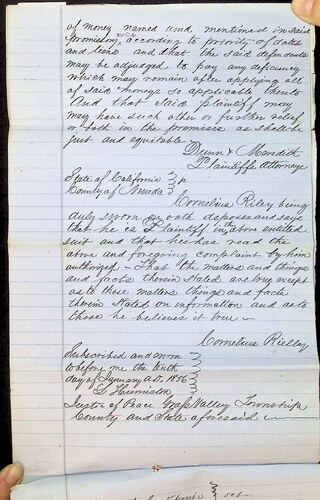 of money named and mentioned in said
promissory note according to priority of dates
and liens and that the said defendants
may be adjudged to pay any deficiency
which may remain after applying all
of said moneys so applicable thereto
And that said plaintiff may
may have such other or further relief
or both in the premises as shall be
just and equitable
Dunn & Meredith
Plaintiffs Attorneys
State of California
County of Nevada } ss
Cornelius Riley being
duly sworn on oath deposes and says
that he is Plaintiff in the above entitled
suit and that he has read the
above and foregoing complaint by him
authorized - That the matters and things
and facts therein Stated are true except
as to those matters things and facts
therein Stated on information and as to
those he believes it true -
Cornelius Rielay
Subscribed and sworn
to before me the tenth
day of January A.D. 1856
Justice of Peace Grass Valley Township
County and State aforesaid